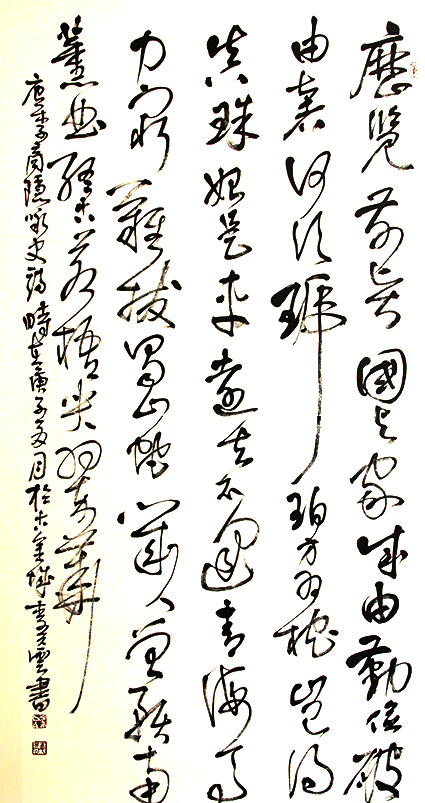 歷覽前賢國与家成由勤儉破
由奢何須琥珀方為枕豈得
真珠始是車運去不逢青海馬
力窮難拔蜀山蛇幾人曾預南
薰曲終古蒼梧哭翠華
唐李商隱咏史詩時在庚子夏月於古金城李雲書